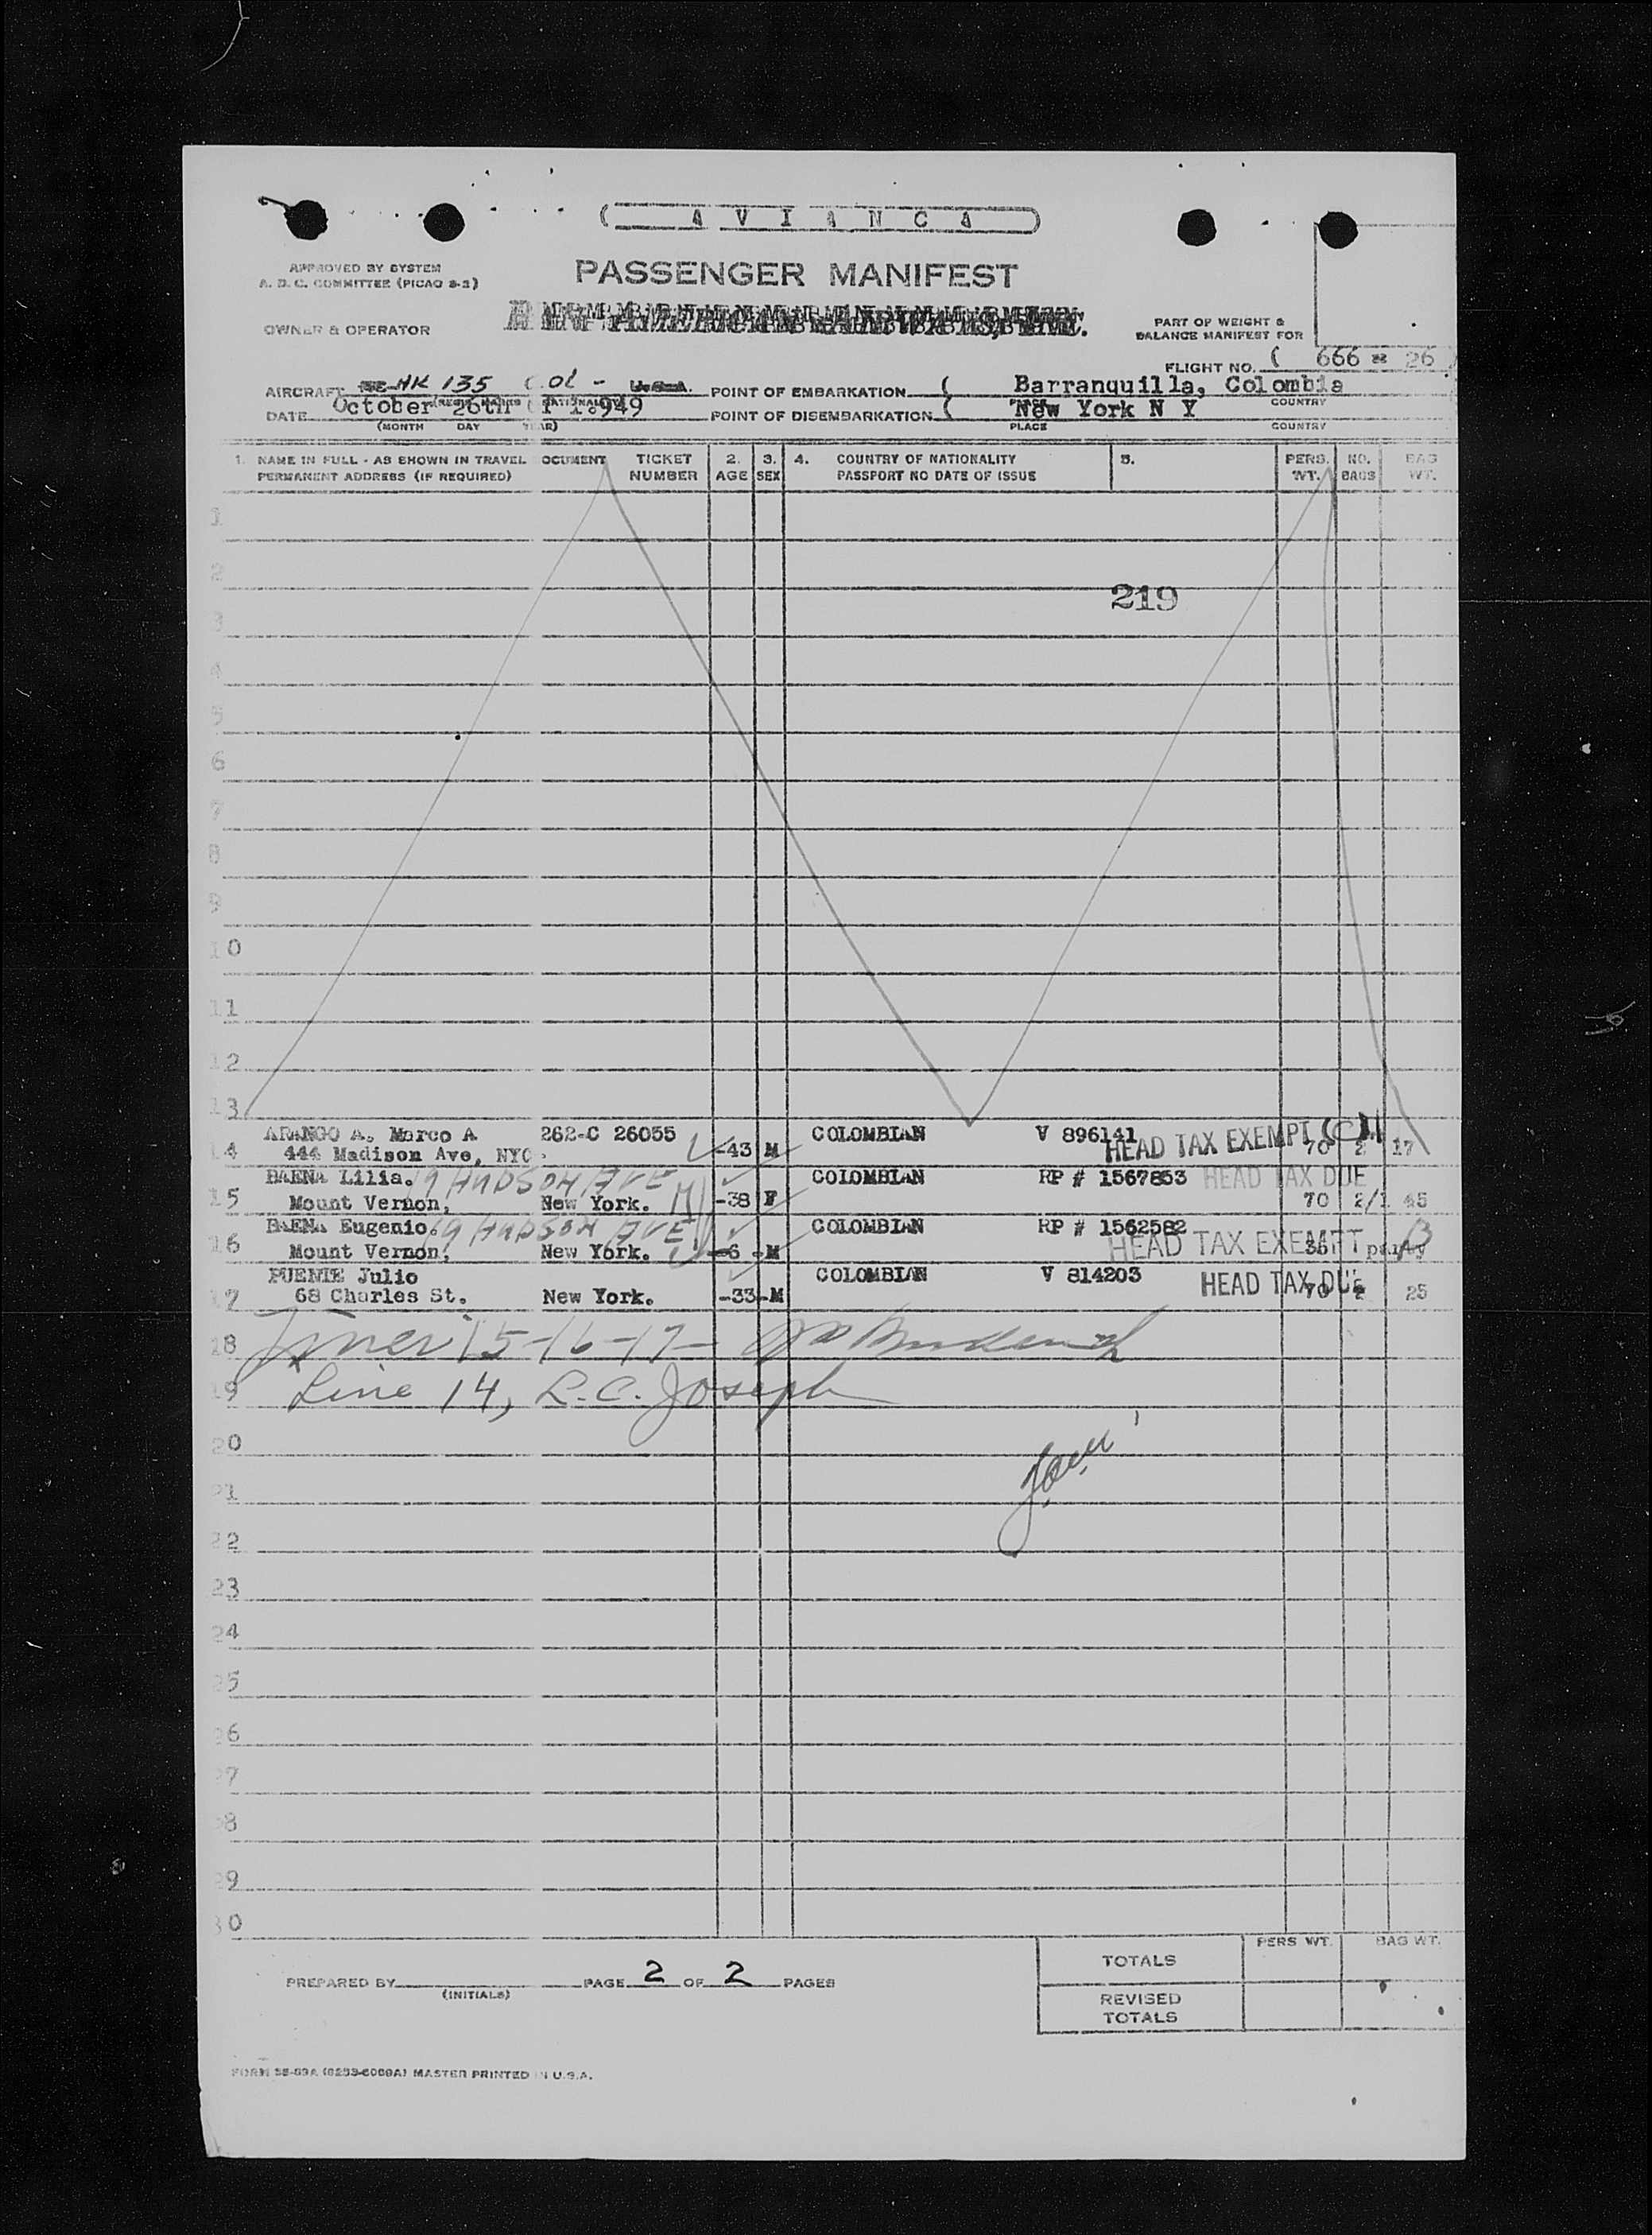 A V I A N C A
APPROVED BY SYSTEM
A. D. C. COMMITTEE (PICAO 8-2)
PASSENGER MANIFEST
OWNER & OPERATOR
PART OF WEIGHT &
BALANCE MANIFEST FOR
FLIGHT NO. ( 666 - 26
AIRCRAFT HK 135 Col - U.S.A. POINT OF EMBARKATION ( Barranquilla, Colombia
COUNTRY
DATE October 26th 1.949 POINT OF DISEMBARKATION ( New York N Y
(MONTH DAY YEAR) PLACE COUNTRY
1. NAME IN FULL - AS SHOWN IN TRAVEL DOCUMENT TICKET 2. 3. 4. COUNTRY OF NATIONALITY 5. PERS. NO. BAG
PERMANENT ADDRESS (IF REQUIRED) NUMBER AGE SEX PASSPORT NO DATE OF ISSUE WT. BAGS WT.
1
2
219
3
4
5
6
7
8
9
10
11
12
13
ARANGO A. Marco A 262-C 26055 COLOMBIAN V 896141
14 444 Madison Ave, NYC. -43 M HEAD TAX EXEMPT 70 2 17
BAENA Lilia. 19 HUDSON AVE COLOMBIAN RP # 1567853 HEAD TAX DUE
15 Mount Vernon, New York. -38 F 70 2/1 45
BAENA Eugenio. 69 HUDSON AVE COLOMBIAN RP # 1562582
16 Mount Vernon, New York. -6 -M HEAD TAX EXEMPT 35 party
PUENTE Julio COLOMBIAN V 814203 HEAD TAX DUE
17 68 Charles St. New York. -33-M 70 2 25
18 Lines 15-16-17-
19 Line 14, R.C. Joseph
20
21
22
23
24
25
26
27
28
29
30
PERS WT. BAG WT.
TOTALS
PREPARED BY PAGE 2 OF 2 PAGES
(INITIALS)
REVISED
TOTALS
MASTER PRINTED IN U.S.A.